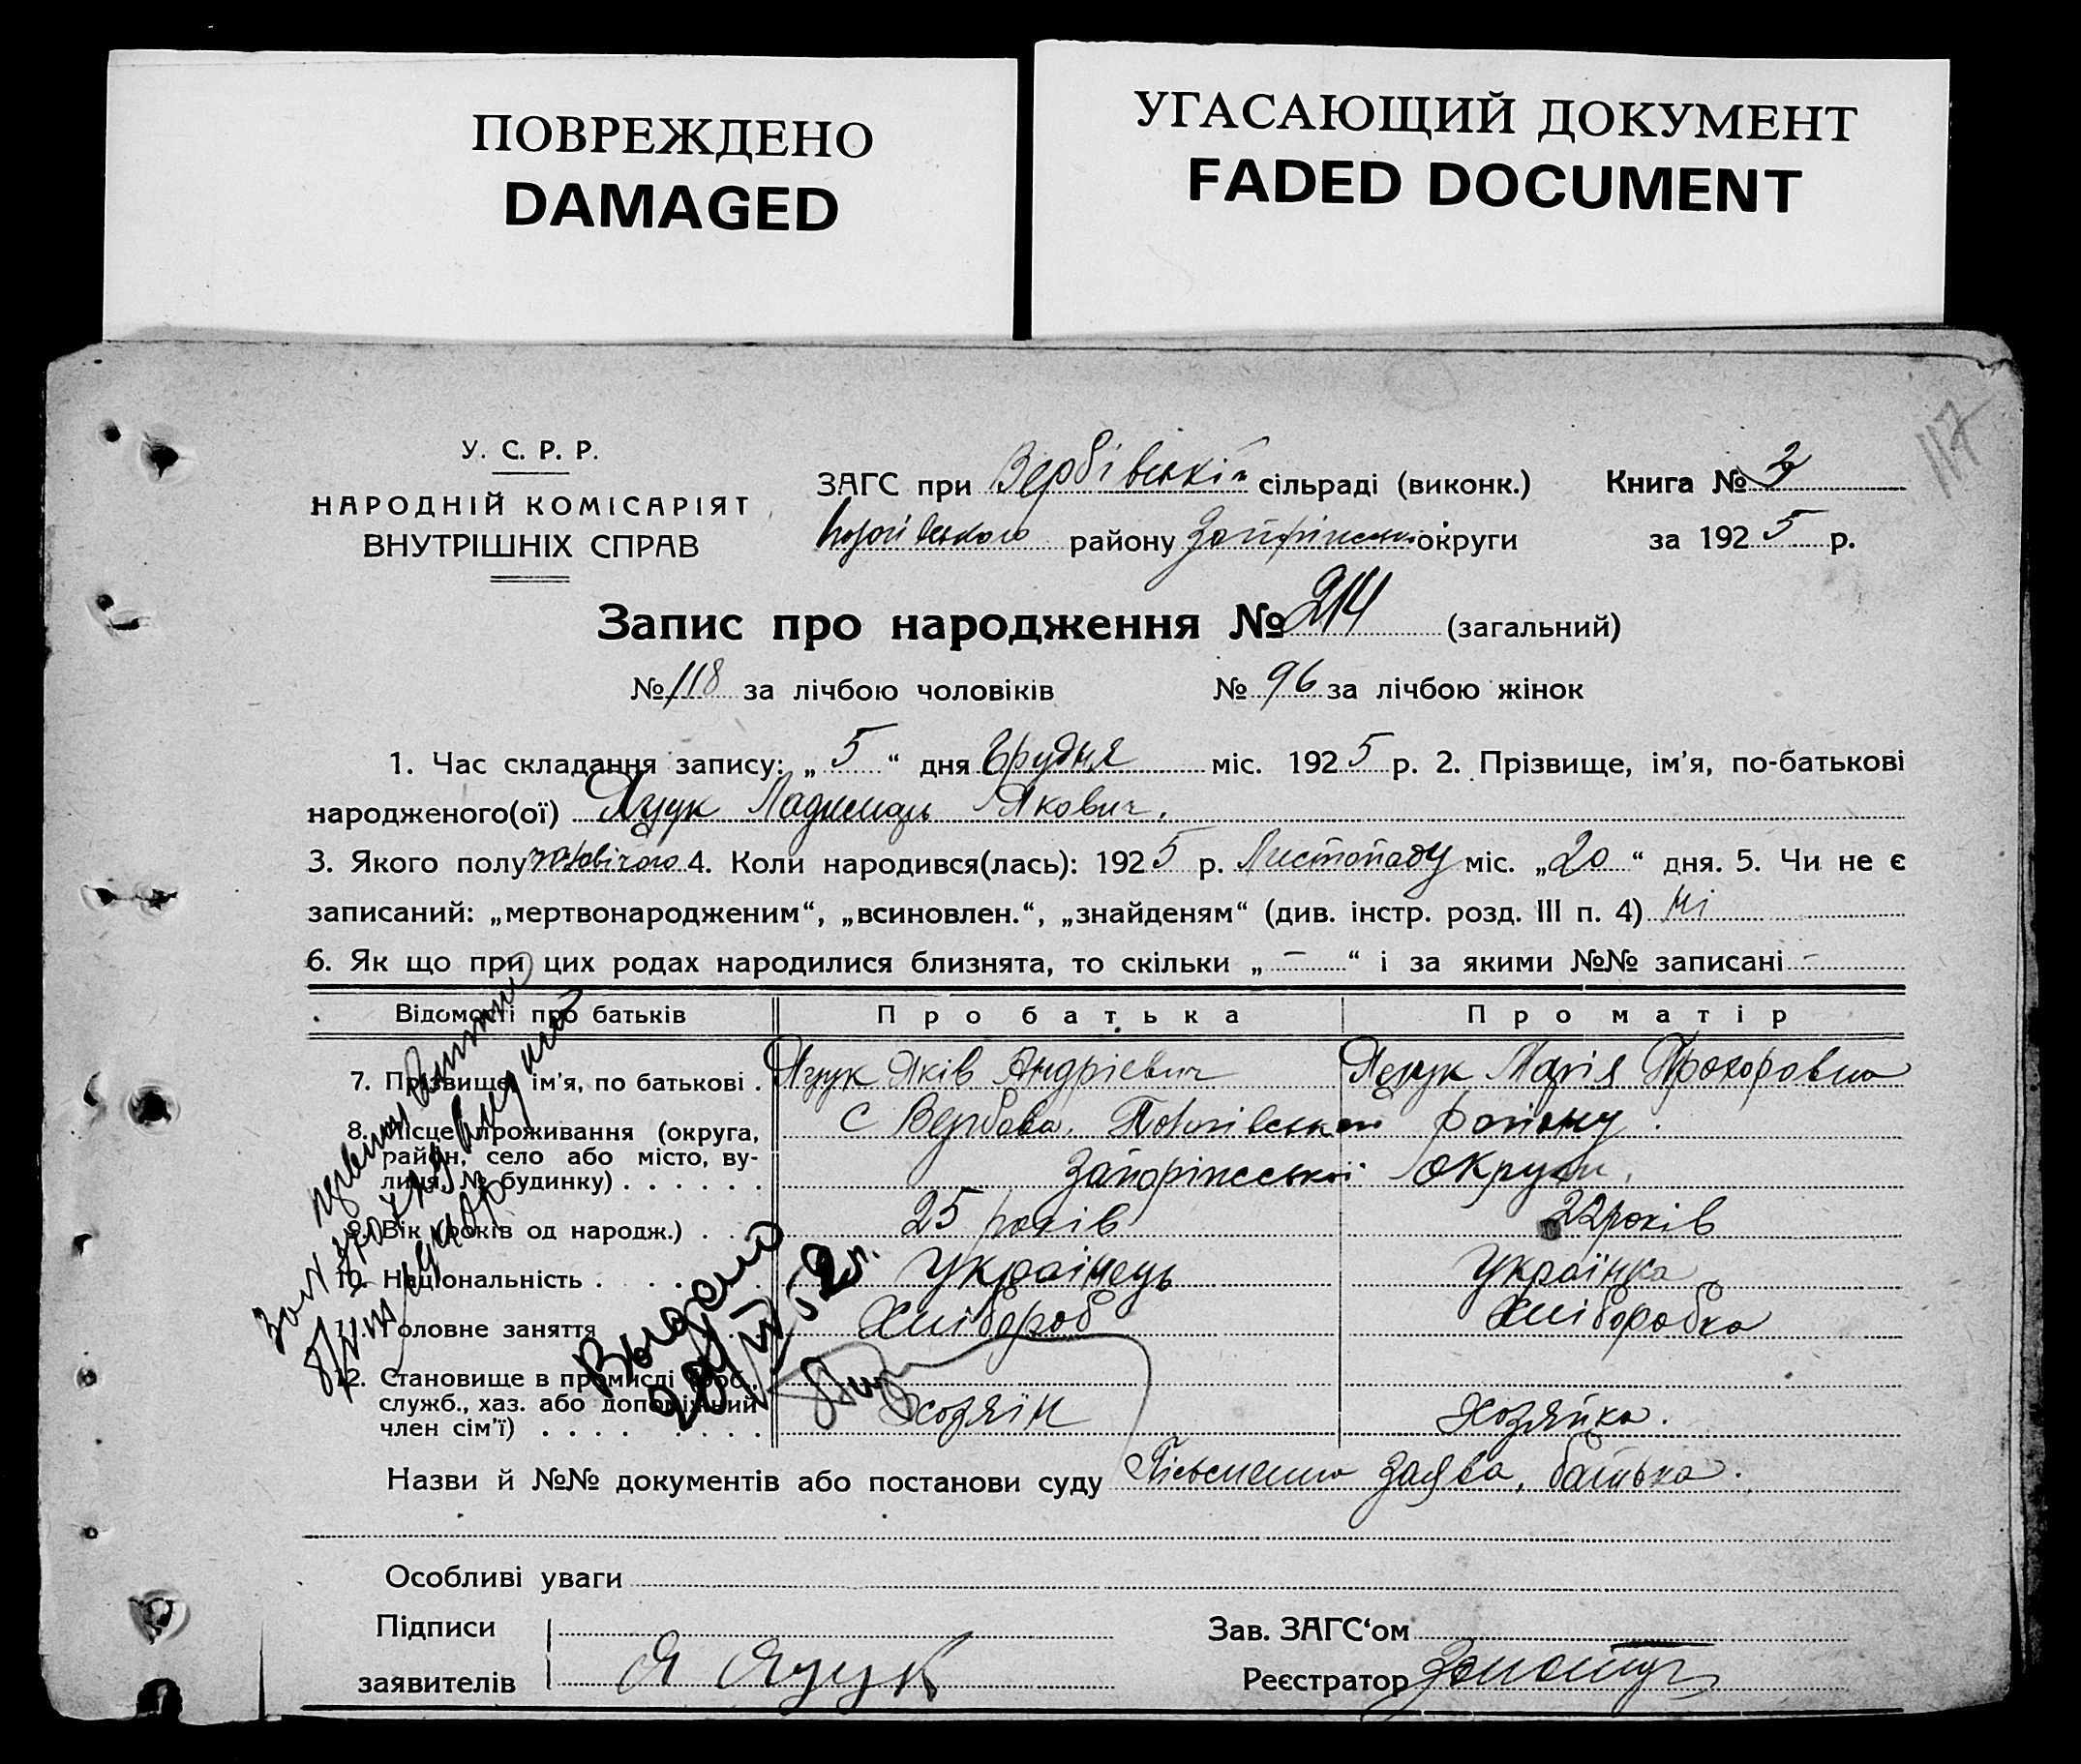 ПОВРЕЖДЕНО
DAMAGED
УГАСАЮЩИЙ ДОКУМЕНТ
FADED DOCUMENT
117
У. С. Р. Р.
НАРОДНІЙ КОМІСАРІЯТ
ВНУТРІШНІХ СПРАВ
ЗАГС при Вербівській сільраді (виконк.) Книга № 3
району округи за 1925 р.
Запис про народження № 214 (загальний)
№ 118 за лічбою чоловіків № 96 за лічбою жінок
1. Час складання запису: „5“ дня Грудня міс. 1925 р. 2. Прізвище, ім'я, по-батькові
народженого(ої) Яцук Якович.
3. Якого полу чоловічого 4. Коли народився(лась): 1925 р. Листопаду міс. „20“ дня. 5. Чи не є
записаний: „мертвонародженим“, „всиновлен.“, „знайденям“ (див. інстр. розд. III п. 4) Ні
6. Як що при цих родах народилися близнята, то скільки „–“ і за якими №№ записані –
Відомості про батьків Про батька Про матір
7. Прізвище, ім'я, по батькові . Яцук Яків Андріевич Яцук Марія Прохоровна
8. Місце проживання (округа, С Вербова. району.
район, село або місто, ву-
лиця, № будинку) . . . . . . Запоріжської округи.
9. Вік (років од народж.) . . 25 років 22 років
10. Національність . . . . Українець Українка
11. Головне заняття Хлібороб Хліборобка
12. Становище в промислі (роб.,
служб., хаз. або допоміжний Хозяїн Хозяйка.
член сім'ї) . . . . . . . .
Выдано
Назви й №№ документів або постанови суду Пісьменна заява, батька.
Особливі уваги
Підписи Зав. ЗАГС‘ом
заявителів Я Яцук Реєстратор